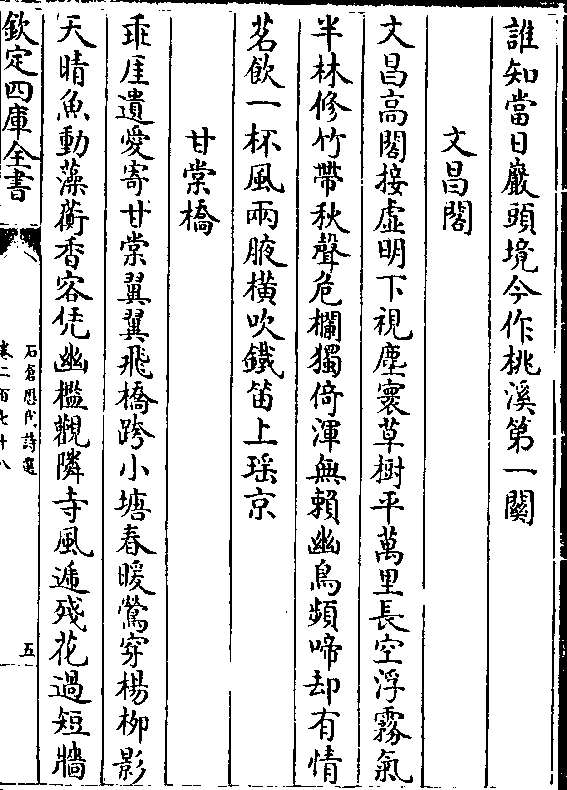 誰知當日巖頭境今作桃溪第一關
文昌閣
文昌高閣接虚明下視塵寰草樹平萬里長空浮霧氣
半林修竹帶秋聲危欄獨倚渾無賴幽鳥頻啼却有情
茗飲一杯風兩腋横吹鐵笛上瑶京
甘棠橋
乖厓遺愛寄甘棠翼翼飛橋跨小塘春暖鶯穿楊柳影
天晴魚動藻蘅香客凭幽檻觀隣寺風遞殘花過短牆
欽定四庫全書
石倉歴代詩選
卷二百七十八
五